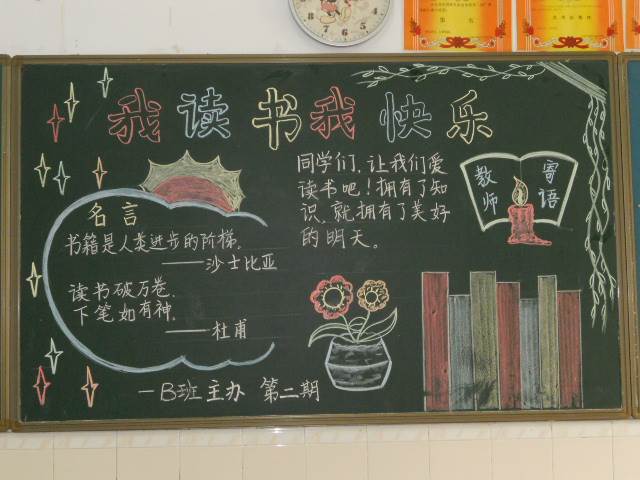 我读书我快乐
名言
书籍是人类进步的阶梯.
——沙士比亚
读书破万卷.
下笔如有神.
——杜甫
同学们,让我们爱
读书吧!拥有了知
识,就拥有了美好
的明天。
教师
寄语
一B班主办 第二期